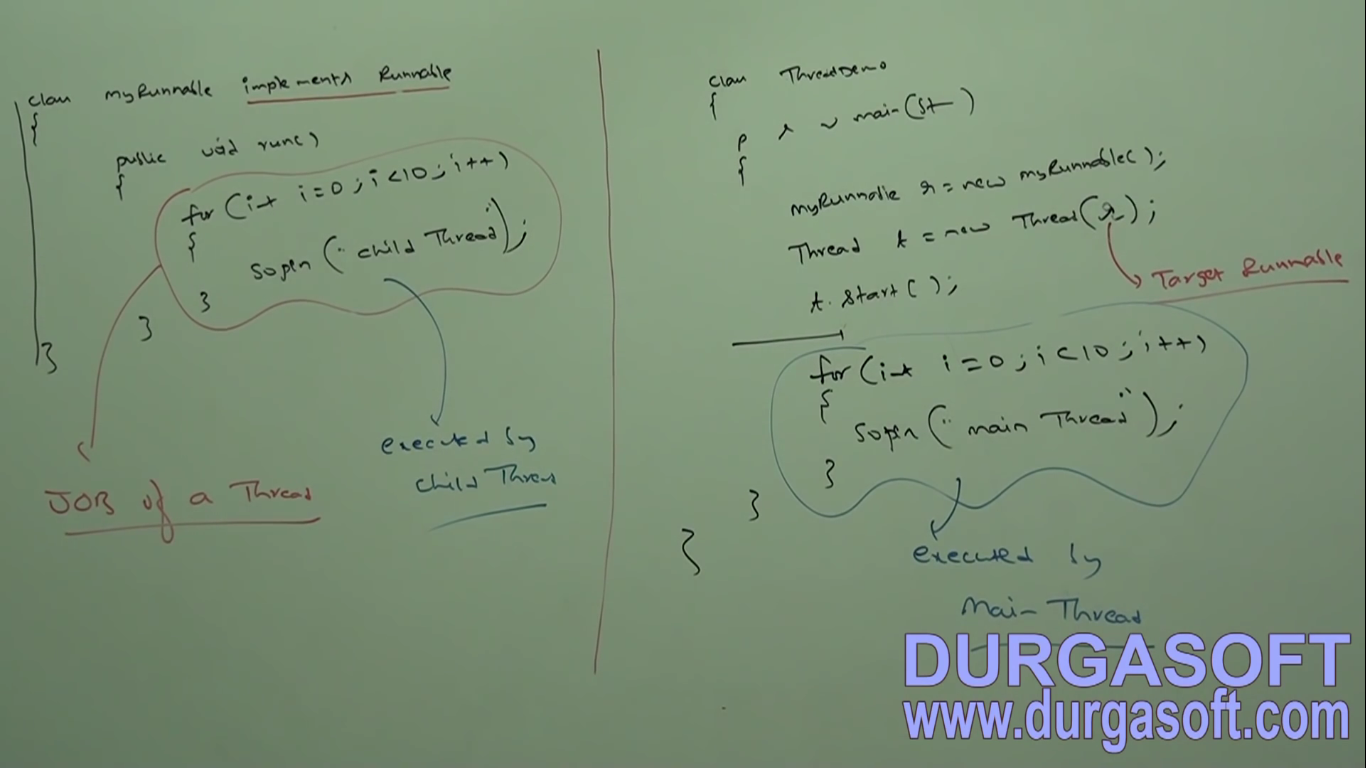 class myRunnable implements Runnable
{
public void run()
{
for (int i=0; i<10; i++)
{
sopln ("child Thread");
}
}
}
JOB of a Thread
executed by
child Thread
class ThreadDemo
{
p s v main(St )
{
myRunnable r = new myRunnable();
Thread t = new Thread(r);
Target Runnable
t.start();
for (int i=0; i<10; i++)
{
sopln ("main Thread");
}
}
}
executed by
Main Thread
DURGASOFT
www.durgasoft.com